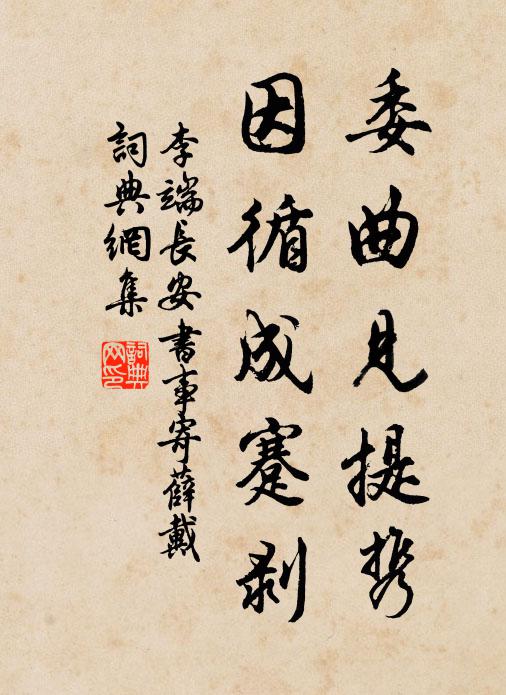 委曲見提携
因循成蹇剥
李端長安書事寄薛戴
詞典網集
詞典網印